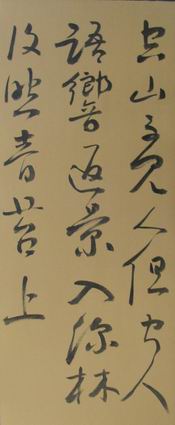 空山不见人但闻人
语響返景入深林
复照青苔上